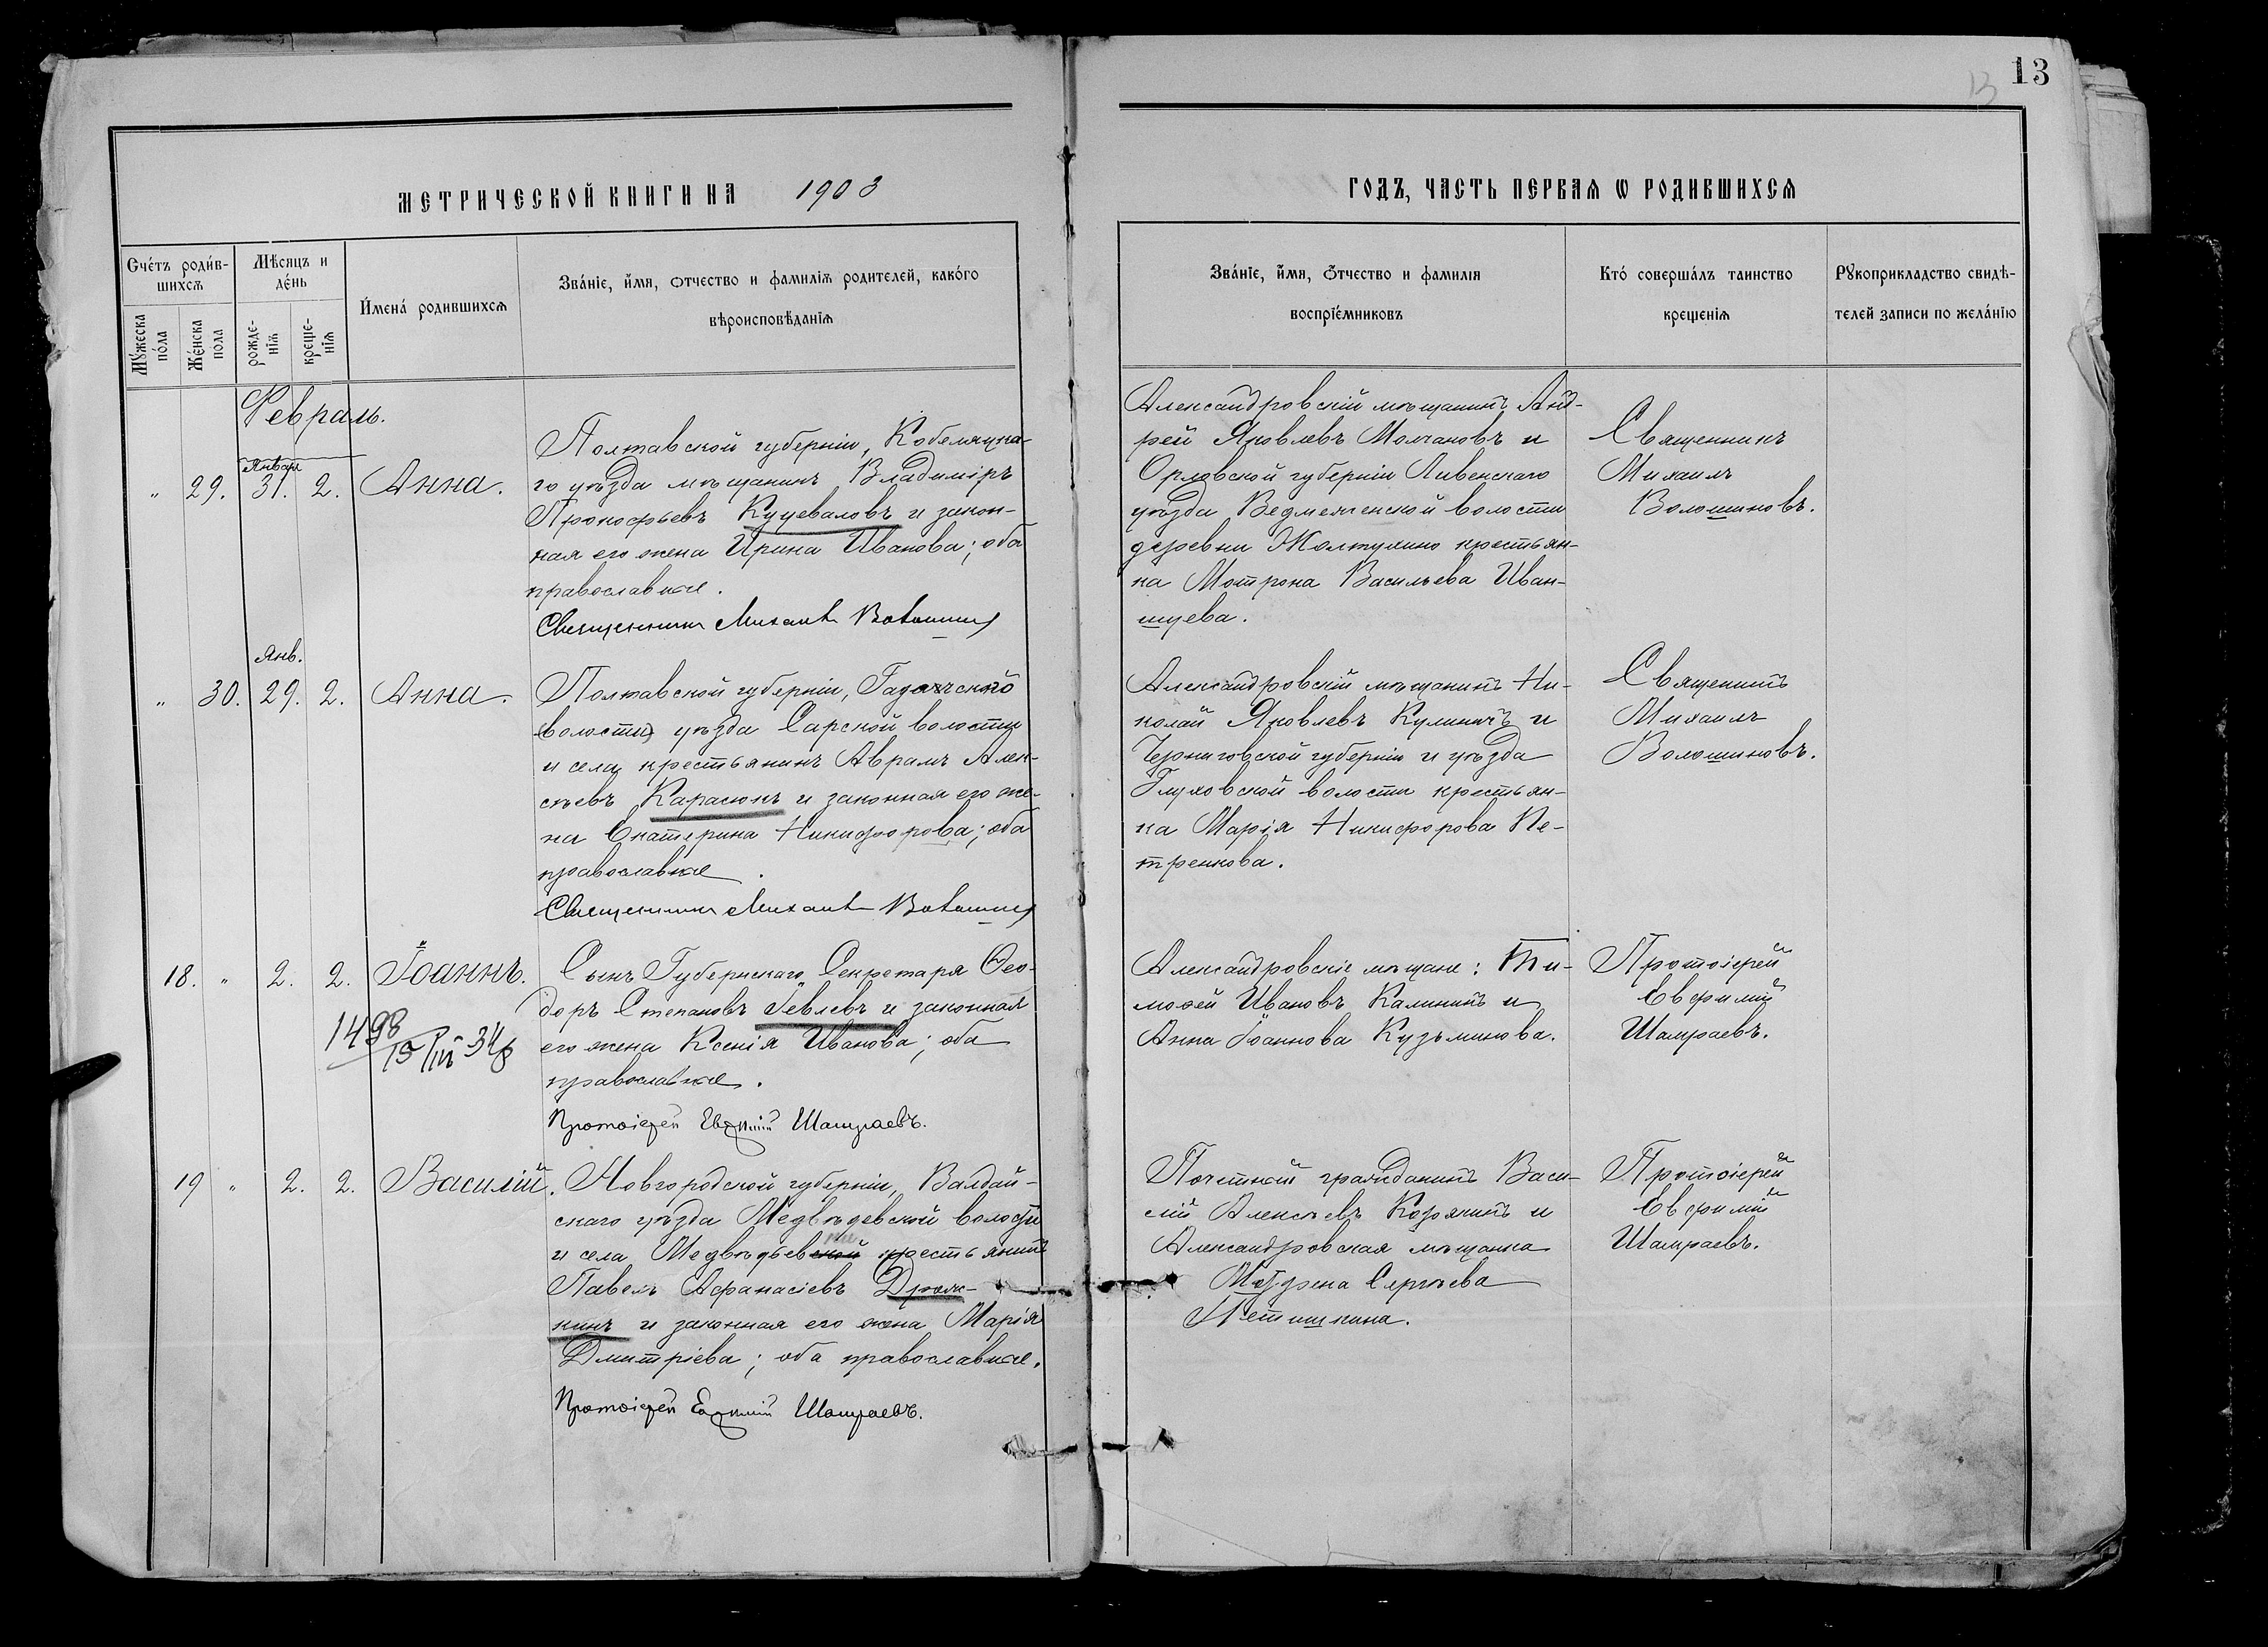 13
13
МЕТРИЧЕСКОЙ КНИГИ НА 1903
ГОДЪ, ЧАСТЬ ПЕРВАЯ Ѡ РОДИВШИХСЯ
Счетъ родив-
шихся
Мѣсяцъ и
день
Мужеска
пола
Женска
пола
рожде-
нія
креще-
нія
Имена родившихся
Званіе, имя, отчество и фамилія родителей, какого
вѣроисповѣданія
Званіе, имя, отчество и фамилія
воспріемниковъ
Кто совершалъ таинство
крещенія
Рукоприкладство свидѣ-
телей записи по желанію
Февраль.
" 29. Января 31. 2. Анна.
Полтавской губерніи, Кобеляцка-
го уѣзда мѣщанинъ Владиміръ
Прокофьевъ Куцеваловъ и закон-
ная его жена Ирина Иванова; оба
православные.
Священникъ Михаилъ Волошинов
Александровскій мѣщанинъ Анд-
рей Яковлевъ Молчановъ и
Орловской губерніи Ливенскаго
уѣзда волости
деревни крестьян-
ка Мотрона Васильева Иван-
щева.
Священникъ
Михаилъ
Волошиновъ.
" 30. Янв. 29. 2. Анна.
Полтавской губерніи, Гадячскаго
(волости) уѣзда Сарской волости
и села крестьянинъ Аврамъ Алек-
сѣевъ Карасюкъ и законная его же-
на Екатерина Никифорова; оба
православные.
Священникъ Михаилъ Волошинов
Александровскій мѣщанинъ Ни-
колай Яковлевъ Куличъ и
Черниговской губерніи и уѣзда
Глуховской волости крестьян-
ка Марія Никифорова Пе-
тренкова.
Священникъ
Михаилъ
Волошиновъ.
18. " 2. 2. Іоаннъ.
1498
Сынъ Губернскаго Секретаря Ѳео-
доръ Степановъ Іевлевъ и законная
его жена Ксенія Иванова; оба
православные.
Протоіерей Евфимій Шамраевъ.
Александровскіе мѣщане: Ти-
моѳей Ивановъ Калининъ и
Анна Іоаннова Кузьминова.
Протоіерей
Евфимій
Шамраевъ.
19 " 2. 2. Василій.
Новгородской губерніи, Валдай-
скаго уѣзда Медвѣдевской волости
и села крестьянинъ
Павелъ Афанасіевъ Дрож-
кинъ и законная его жена Марія
Дмитріева; оба православные.
Протоіерей Евфимій Шамраевъ.
Почетный гражданинъ Васи-
лій Алексѣевъ Корякинъ и
Александровская мѣщанка
Сергѣева
Протоіерей
Евфимій
Шамраевъ.